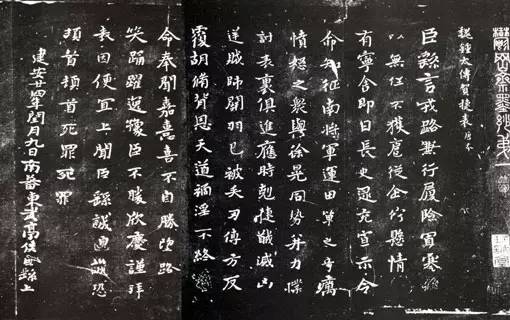 魏鍾太傅賀捷表
臣繇言戎路兼行履險冒寒
以無任不獲扈從企佇懸情
有寧舍即日長史逯充宣示令
命知征南將軍運田單之奇厲
憤怒之衆與徐晃同勢并力撲
討表裏俱進應時剋捷馘滅凶
逆賊帥關羽已被矢刃傅方反
覆胡脩背恩天道禍淫不終
命奉聞嘉憙喜不自勝望路
笑踊躍逸豫臣不勝欣慶謹拜
表因便宜上聞臣繇誠惶誠恐
頓首頓首死罪死罪
建安廿四年閏月九日南蕃東武亭侯臣繇上